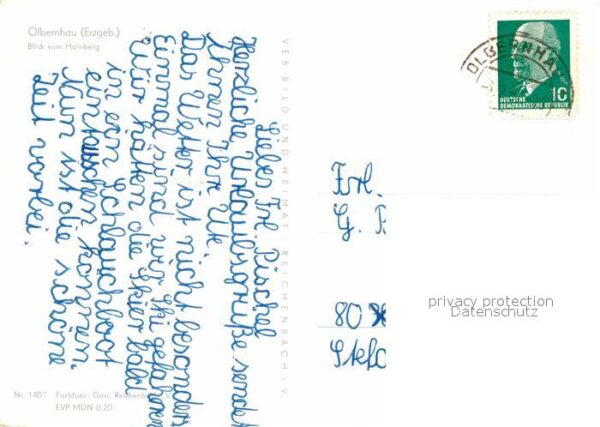 Olbernhau (Erzgeb.)
Blick vom Hainberg
VEB BILD UND HEIMAT REICHENBACH i. V.
Liebes Frl. Püschel
Herzliche Urlaubsgrüße sendet
Ihnen Ihre Ute
Das Wetter ist nicht besonders
Einmal sind wir Ski gefahren
Wir hätten die Skier bald
in ein Schlauchboot
eintauschen können.
Nun ist die schöne
Zeit vorbei.
Nr. 1407 Farbfoto: Darr, Reichenb
EVP MDN 0.20
OLBERNHA
10
DEUTSCHE
DEMOKRATISCHE REPUBLIK
Frl.
G.
80
Stef
privacy protection
Datenschutz